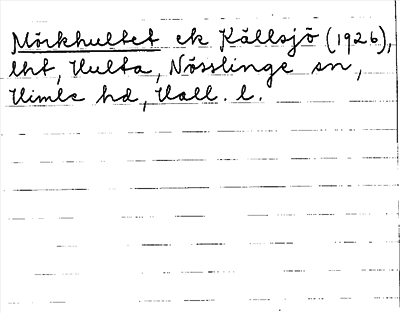 Mörkhultet ek Källsjö (1926),
lht, Hulta, Nösslinge sn,
Himle hd, Hall. l.